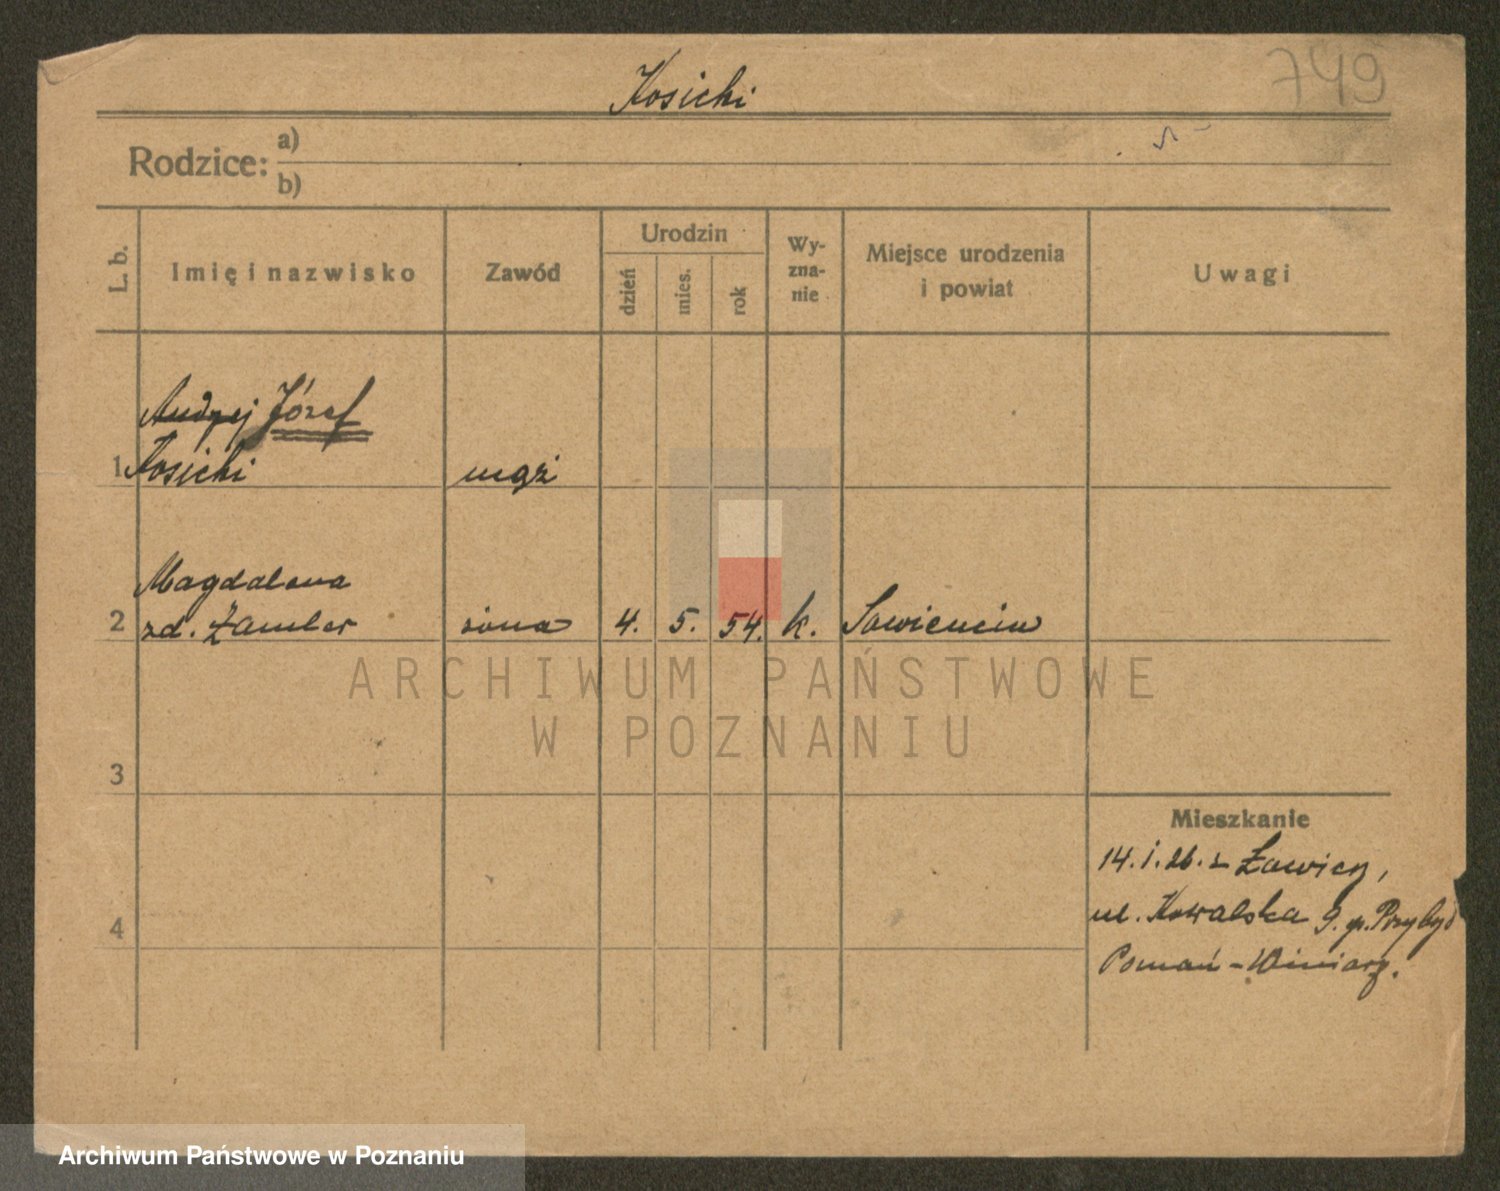 Kosicki
749
Rodzice: a)
b)
L. b.
Imię i nazwisko
Zawód
Urodzin
dzień
mies.
rok
Wy-
zna-
nie
Miejsce urodzenia
i powiat
Uwagi
Andrzej Józef
1 Kosicki mąż
Magdalena
2 zd. żona 4. 5. 54. k.
3
4
Mieszkanie
14. I. 26. z Ławicy,
ul. Kowalska 9. p. Przybył
Poznań - Winiary.
ARCHIWUM PAŃSTWOWE
W POZNANIU
Archiwum Państwowe w Poznaniu